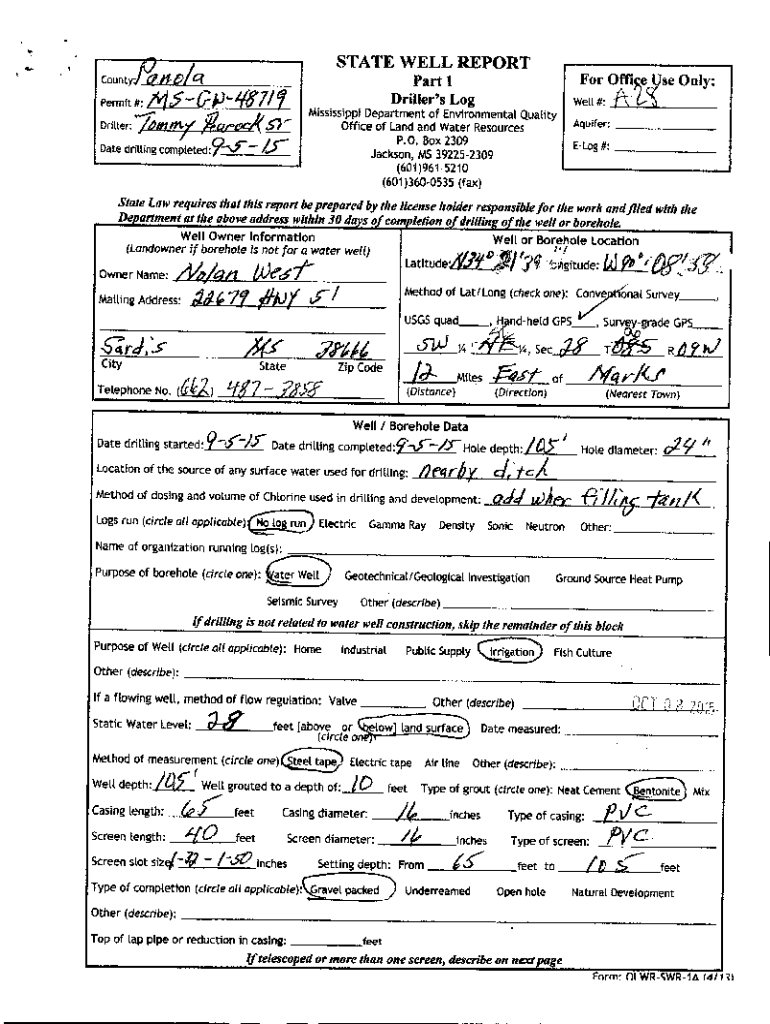 STATE WELL REPORT
Part 1
Driller's Log
Mississippi Department of Environmental Quality
Office of Land and Water Resources
P.O. Box 2309
Jackson, MS 39225-2309
(601)961-5210
(601)360-0535 (fax)
County: Panola
Permit #: MS-GW-48719
Driller: Tommy Peacock Sr
Date drilling completed: 9-5-15
For Office Use Only:
Well #: A28
Aquifer:
E-Log #:
State Law requires that this report be prepared by the license holder responsible for the work and filed with the
Department at the above address within 30 days of completion of drilling of the well or borehole.
Well Owner Information
(Landowner if borehole is not for a water well)
Owner Name: Nolan West
Mailing Address: 22679 HWY 51
Sardis MS 38666
City State Zip Code
Telephone No. (662) 487-3858
Well or Borehole Location
Latitude: N34° 39 Longitude: W90° 08'
Method of Lat/Long (check one): Conventional Survey
USGS quad , Hand-held GPS ✓, Survey-grade GPS
SW ¼ NE ¼, Sec 28 T R 09W
12 Miles East of Marks
(Distance) (Direction) (Nearest Town)
Well / Borehole Data
Date drilling started: 9-5-15 Date drilling completed: 9-5-15 Hole depth: 105' Hole diameter: 24"
Location of the source of any surface water used for drilling: nearby ditch
Method of dosing and volume of Chlorine used in drilling and development: add when filling tank
Logs run (circle all applicable): No log run Electric Gamma Ray Density Sonic Neutron Other:
Name of organization running log(s):
Purpose of borehole (circle one): Water Well Geotechnical/Geological Investigation Ground Source Heat Pump
Seismic Survey Other (describe)
If drilling is not related to water well construction, skip the remainder of this block
Purpose of Well (circle all applicable): Home Industrial Public Supply Irrigation Fish Culture
Other (describe):
If a flowing well, method of flow regulation: Valve Other (describe) OCT 08 2015
Static Water Level: 28 feet [above or below] land surface Date measured:
(circle one)
Method of measurement (circle one) Steel tape Electric tape Air line Other (describe):
Well depth: 105' Well grouted to a depth of: 10 feet Type of grout (circle one): Neat Cement Bentonite Mix
Casing length: 65 feet Casing diameter: 16 inches Type of casing: PVC
Screen length: 40 feet Screen diameter: 16 inches Type of screen: PVC
Screen slot size: 1-32 - 1-50 inches Setting depth: From 65 feet to 105 feet
Type of completion (circle all applicable): Gravel packed Underreamed Open hole Natural Development
Other (describe):
Top of lap pipe or reduction in casing: feet
If telescoped or more than one screen, describe on next page
Form: OLWR-SWR-1A (4/13)